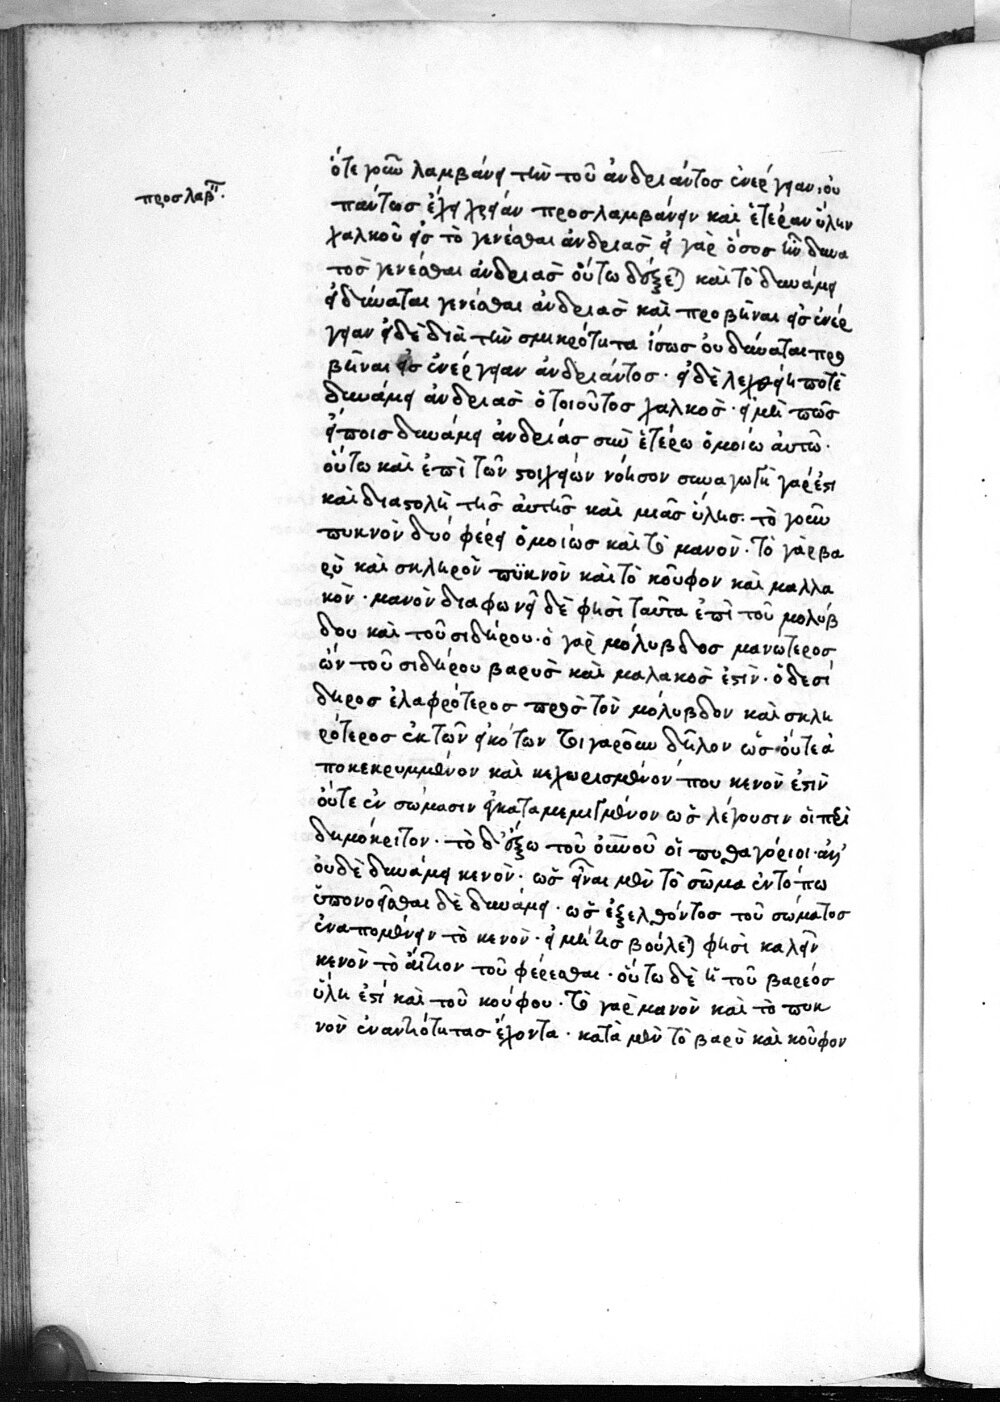 προσλαβ
ὅτε γοῦν λαμβάνει τὴν τοῦ ἀνδριάντος ἐνέργειαν, οὐ
πάντως ἔχει χρείαν προσλαμβάνειν καὶ ἑτέραν ὕλην
χαλκοῦ εἰς τὸ γενέσθαι ἀνδριὰς εἰ γὰρ ὅσος ἦν δυνα
τὸς γενέσθαι ἀνδριὰς οὕτω δόξει καὶ τὸ δυνάμει
εἰ δύναται γενέσθαι ἀνδριὰς καὶ προβῆναι εἰς ἐνέρ
γειαν εἰ δὲ διὰ τὴν σμικρότητα ἴσως οὐ δύναται προ
βῆναι εἰς ἐνέργειαν ἀνδριάντος· εἰ δὲ λεχθείη ποτὲ
δυνάμει ἀνδριὰς ὁ τοιοῦτος χαλκὸς· εἰ μὴ πῶς
εἴποις δυνάμει ἀνδριάς σὺν ἑτέρω ὁμοίω αὐτῶ·
οὕτω καὶ ἐπὶ τῶν στοιχείων νόησον συναγωγὴ γάρ ἐστι
καὶ διαστολὴ τῆς αὐτῆς καὶ μιᾶς ὕλης. τὸ γοῦν
πυκνὸν δύο φέρει ὁμοίως καὶ τὸ μανὸν· τὸ γὰρ βα
ρὺ καὶ σκληρὸν πυκνὸν καὶ τὸ κοῦφον καὶ μαλλα
κὸν· μανὸν διαφωνεῖ δὲ φησὶ ταῦτα ἐπὶ τοῦ μολύβ
δου καὶ τοῦ σιδήρου· ὁ γὰρ μόλυβδος μανώτερος
ὢν τοῦ σιδήρου βαρὺς καὶ μαλακὸς ἐστὶν· ὁ δὲ σί
δηρος ἐλαφρότερος πρὸς τὸν μόλυβδον καὶ σκλη
ρότερος ἐκ τῶν εἰκότων τι γαροῦν δῆλον ὡς οὔτε ἀ
ποκεκρυμμένον καὶ κεχωρισμένον που κενὸν ἐστὶν
οὔτε ἐν σώμασιν ἐγκαταμεμιγμένον ὡς λέγουσιν οἱ περὶ
δημόκριτον· τὸ δ' ἔξω τοῦ οὐνοῦ οἱ πυθαγόριοι· ἀλλ'
οὐδὲ δυνάμει κενὸν· ὡς εἶναι μὲν τὸ σῶμα ἐν τόπω
ὑπονοεῖσθαι δὲ δυνάμει· ὡς ἐξελθόντος τοῦ σώματος
ἐναπομένειν τὸ κενὸν· εἰ μή τις βούλεται φησὶ καλεῖν
κενὸν τὸ αἴτιον τοῦ φέρεσθαι· οὕτω δὲ ἡ τοῦ βαρέος
ὕλη ἐστί καὶ τοῦ κούφου· τὸ γὰρ μανὸν καὶ τὸ πυκ
νὸν ἐναντιότητας ἔχοντα· κατὰ μὲν τὸ βαρὺ καὶ κοῦφον